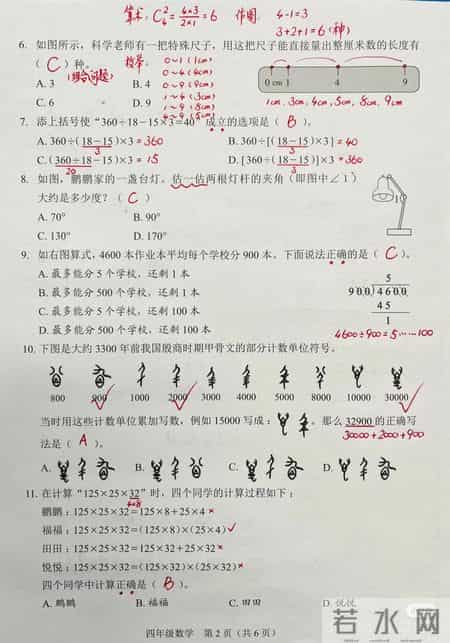 算术：C₄²=4×3/2×1=6 作图 4-1=3
3+2+1=6(种)
6. 如图所示，科学老师有一把特殊尺子，用这把尺子能直接量出整厘米数的长度有
（ C ）种。
(组合问题)
0~1(1cm)
0~4(4cm)
0~9(9cm)
1~4(3cm)
1~9(8cm)
4~9(5cm)
A. 3 B. 4
C. 6 D. 9
0 cm 1 4 9
1cm、3cm、4cm、5cm、8cm、9cm
7. 添上括号使“360÷18－15×3＝40”成立的选项是（ B ）。
A. 360÷(18－15)×3=360 B. 360÷[(18－15)×3]=40
3 3
C. (360÷18－15)×3=15 D. [360÷(18－15)]×3=360
20 3
8. 如图，鹏鹏家的一盏台灯。估一估两根灯杆的夹角（即图中∠1）
大约是多少度？（ C ）
A. 70° B. 90°
C. 130° D. 170°
1
9. 如右图算式，4600 本作业本平均每个学校分 900 本。下面说法正确的是（ C ）。
A. 最多能分 5 个学校，还剩 1 本
B. 最多能分 500 个学校，还剩 1 本
C. 最多能分 5 个学校，还剩 100 本
D. 最多能分 500 个学校，还剩 100 本
5
900)4600
45
1
4600÷900=5……100
10. 下图是大约 3300 年前我国殷商时期甲骨文的部分计数单位符号。
800 900 1000 2000 3000 4000 5000 8000 10000 30000
当时用这些计数单位累加写数，例如 15000 写成： 。那么 32900 的正确写
30000+2000+900
法是（ A ）。
A. B. C. D.
11. 在计算“125×25×32”时，四个同学的计算过程如下：
4×8
鹏鹏：125×25×32＝125×8＋25×4 ×
福福：125×25×32＝(125×8)×(25×4) √
田田：125×25×32＝125×32＋25×32 ×
悦悦：125×25×32＝(125×32)×(25×32) ×
四个同学中计算正确是（ B ）。
A. 鹏鹏 B. 福福 C. 田田 D. 悦悦
四年级数学 第 2 页（共 6 页）
若水网